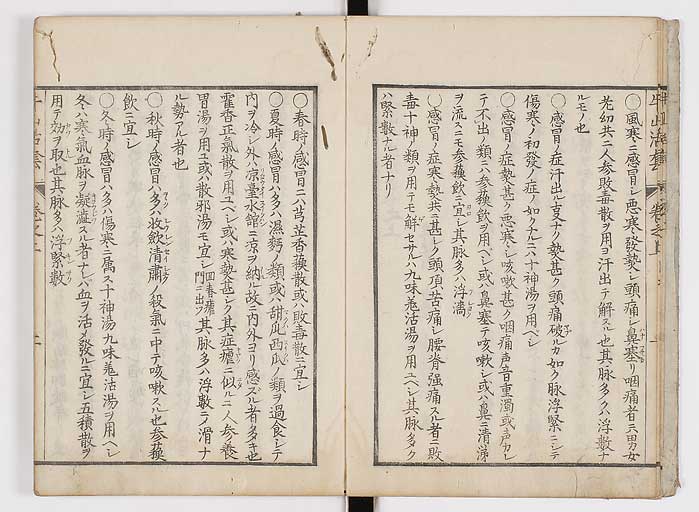 〇風寒ニ感冒シ悪寒シ發𤍠シ頭痛シ鼻塞リ咽痛者ニハ男女
老幼共ニ人參敗毒散ヲ用ヨ汗出テ解スル也其脉多クハ浮數ナ
ルモノ也
〇感冒ノ症汗出ル支ナク𤍠甚ク頭痛破ルカ如ク脉浮緊ニシテ
傷寒ノ初發ノ症ノ如クナルニハ十神湯ヲ用ベシ
〇感冒ノ症𤍠甚ク悪寒シ咳嗽甚ク咽痛声音重濁或ハ声カレ
テ不出ノ類ニハ參蘓飲ヲ用ベシ或ハ鼻塞テ咳嗽シ或ハ鼻ニ清涕
ヲ流スニモ參蘓飲ニ宜シ其脉多クハ浮濇
〇感冒ノ症寒𤍠共ニ甚シク頭項苦痛シ腰脊强痛スル者ニ敗
毒十神ノ類ヲ用テモ解セサルハ九味羗活湯ヲ用ユベシ其脉多ク
ハ緊數ナル者ナリ
〇春時ノ感冒ニハ芎芷香蘓散或ハ敗毒散ニ宜シ
〇夏時ノ感冒ハ多クハ濕麪ノ類或ハ甜瓜西瓜ノ類ヲ過食シテ
内ヲ冷シ外ハ凉臺水舘ニ凉ヲ納ル故ニ内外ヨリ感スル者多キ也
藿香正氣散ヲ用ユベシ或ハ寒𤍠甚シク其症瘧ニ似ルニ人參養
胃湯ヲ用ユ或ハ散邪湯モ宜シ四春瘧門ニ出ツ其脉多ハ浮數ニ乄滑ナ
ル𫝑アル者也
〇秋時ノ感冒ハ多クハ收歛清肅ノ殺氣ニ中テ咳嗽スル也參蘓
飲ニ宜シ
〇冬時ノ感冒ハ多ハ傷寒ニ屬ス十神湯九味羗活湯ヲ用ベシ
冬ハ寒氣血脉ヲ凝濇スル者ナレバ血ヲ活メ發ルニ宜シ五積散ヲ
用テ効ヲ取也其脉多ハ浮緊數